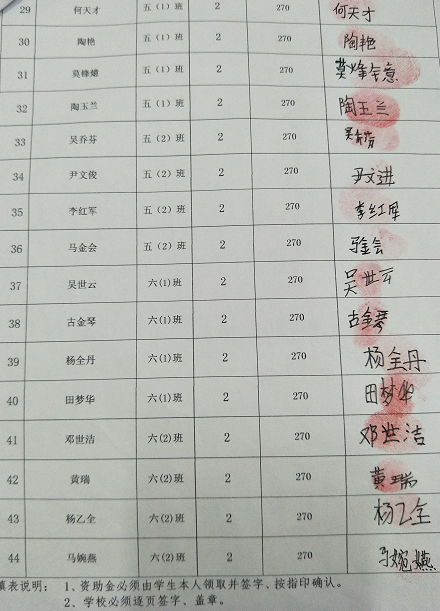 29 何天才 五(1)班 2 270 何天才
30 陶艳 五(1)班 2 270 陶艳
31 莫锋镱 五(1)班 2 270
32 陶玉兰 五(1)班 2 270 陶玉兰
33 吴乔芬 五(2)班 2 270 吴乔芬
34 尹文俊 五(2)班 2 270 尹文进
35 李红军 五(2)班 2 270 李红军
36 马金会 五(2)班 2 270 马金会
37 吴世云 六(1)班 2 270 吴世云
38 古金琴 六(1)班 2 270 古金琴
39 杨全丹 六(1)班 2 270 杨全丹
40 田梦华 六(1)班 2 270 田梦华
41 邓世洁 六(2)班 2 270 邓世洁
42 黄瑞 六(2)班 2 270 黄瑞
43 杨乙全 六(2)班 2 270 杨乙全
44 马婉燕 六(2)班 2 270
填表说明: 1、资助金必须由学生本人领取并签字、按指印确认。
2、学校必须逐页签字、盖章。